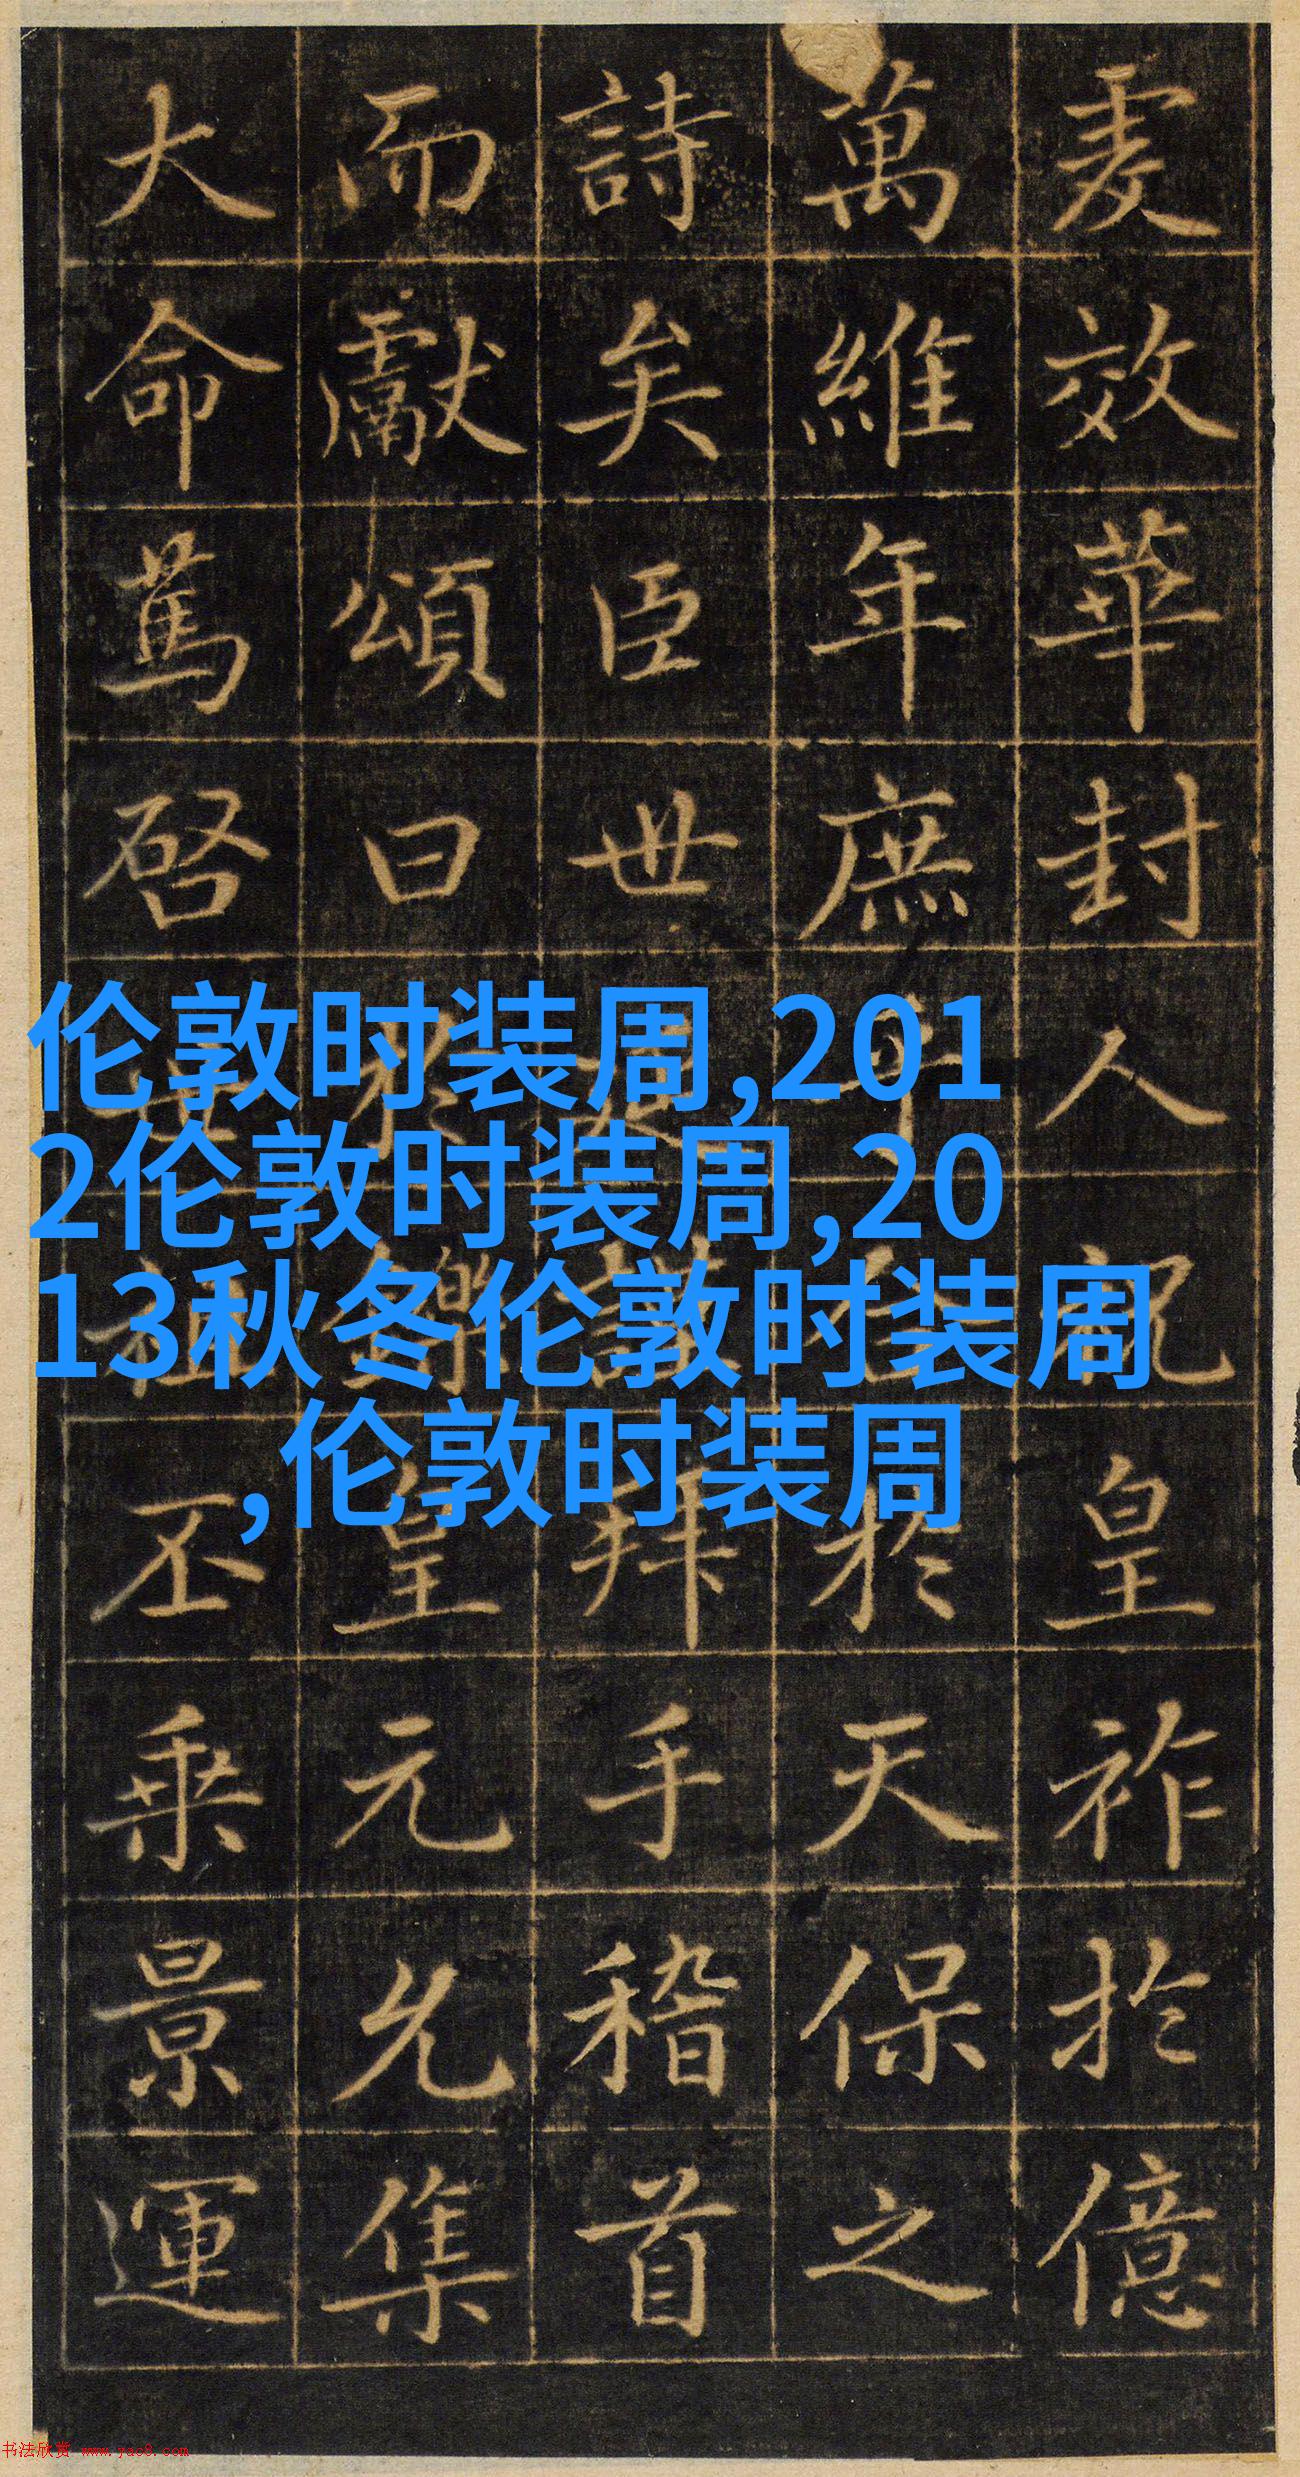 虔效華封人祝皇祚於億
萬維年庶於天保之
詩矣臣世謹拜手稽首
而獻頌曰於鑠皇元允集
大命篤啓世祖丕乘景運
伦敦时装周,201
2伦敦时装周,20
13秋冬伦敦时装周
,伦敦时装周
书法欣赏 www.yac8.com